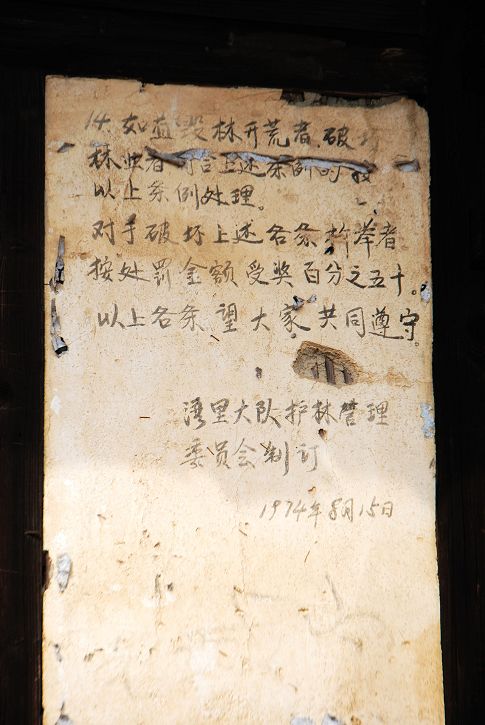 14. 如有毁林开荒者、破坏
林业者 符合上述条例的 按
以上条例处理。
对于破坏上述各条 检举者
按处罚金额受奖百分之五十。
以上各条、望大家共同遵守。
湾里大队护林管理
委员会制订
1974年8月15日